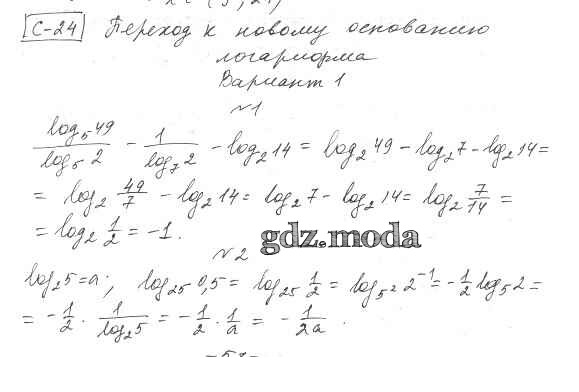 С-24 Переход к новому основанию
логарифма
Вариант 1
№1
log₅49/log₅2 - 1/log₇2 - log₂14 = log₂49 - log₂7 - log₂14 =
= log₂ 49/7 - log₂14 = log₂7 - log₂14 = log₂ 7/14 =
= log₂ 1/2 = -1.
gdz.moda
№2
log₂5 = a; log₂₅ 0,5 = log₂₅ 1/2 = log₅² 2⁻¹ = -1/2 log₅2 =
= -1/2 · 1/log₂5 = -1/2 · 1/a = - 1/2a .